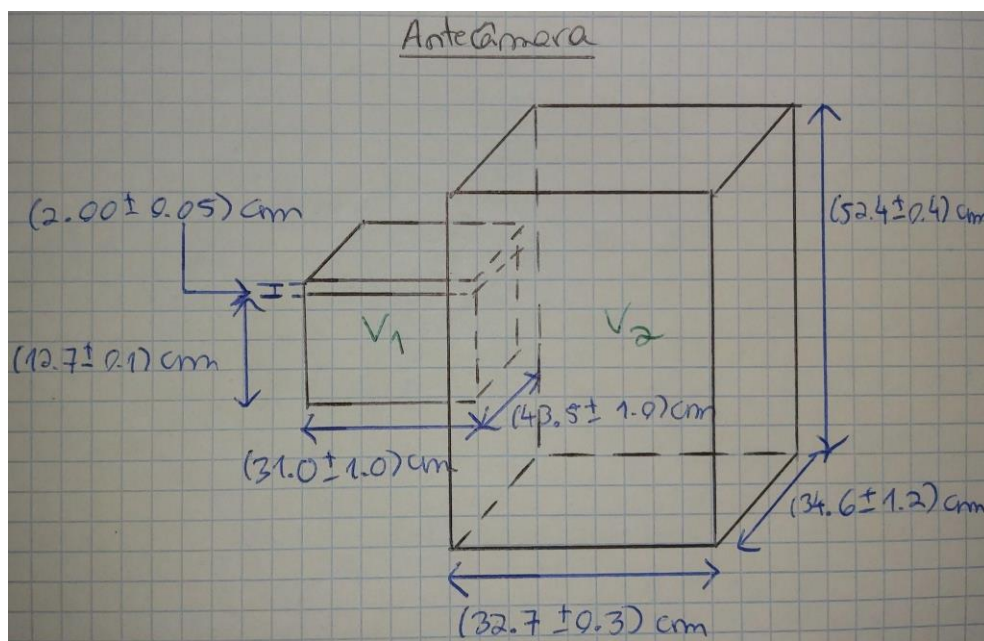 Antecâmara
(2.00 ± 0.05) cm
(52.4 ± 0.4) cm
V1
V2
(12.7 ± 0.1) cm
(43.5 ± 1.0) cm
(31.0 ± 1.0) cm
(34.6 ± 1.2) cm
(32.7 ± 0.3) cm